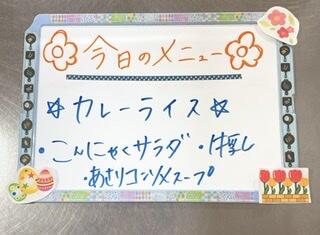 今日のメニュー
☆カレーライス☆
・こんにゃくサラダ・汁戻し
・あさりコンソメスープ